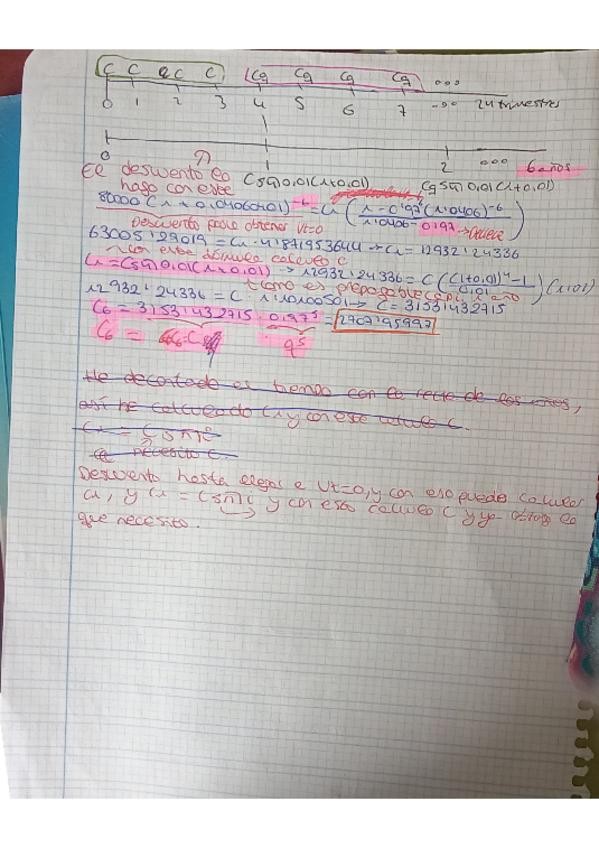 C C C C Cq Cq Cq Cq ...
0 1 2 3 4 5 6 7 ... 24 trimestres
0 1 2 ... 6 años
El descuento lo hago con este
Cs4̅|0,01(1+0,01) Cqs4̅|0,01(1+0,01)
80000(1+0,04060401)^-6 = C1 ((1-0'97^6(1'0406)^-6)/(1'0406-0'97)) → Decrece
Descuento para obtener Vt=0
63005'29019 = C1 · 4'871953644 → C1 = 12932'24336
con esta fórmula calculo C
C1 = Cs4̅|0,01(1+0,01) → 12932'24336 = C(((1+0,01)^4-1)/0,01)(1,01)
12932'24336 = C · 4'10100501 → C = 3153'1432715
C6 = 3153'1432715 · 0,97^5 = 2707'95997
C6 = C q^5
He descontado el tiempo con la recta de los años,
así he calculado C1 y con este calculo C.
C1 = Cs
necesito C.
Descuento hasta llegar a Vt=0, y con eso puedes calcular
C1, y C1 = Cs y con esto calculo C y ya lo
que necesito.